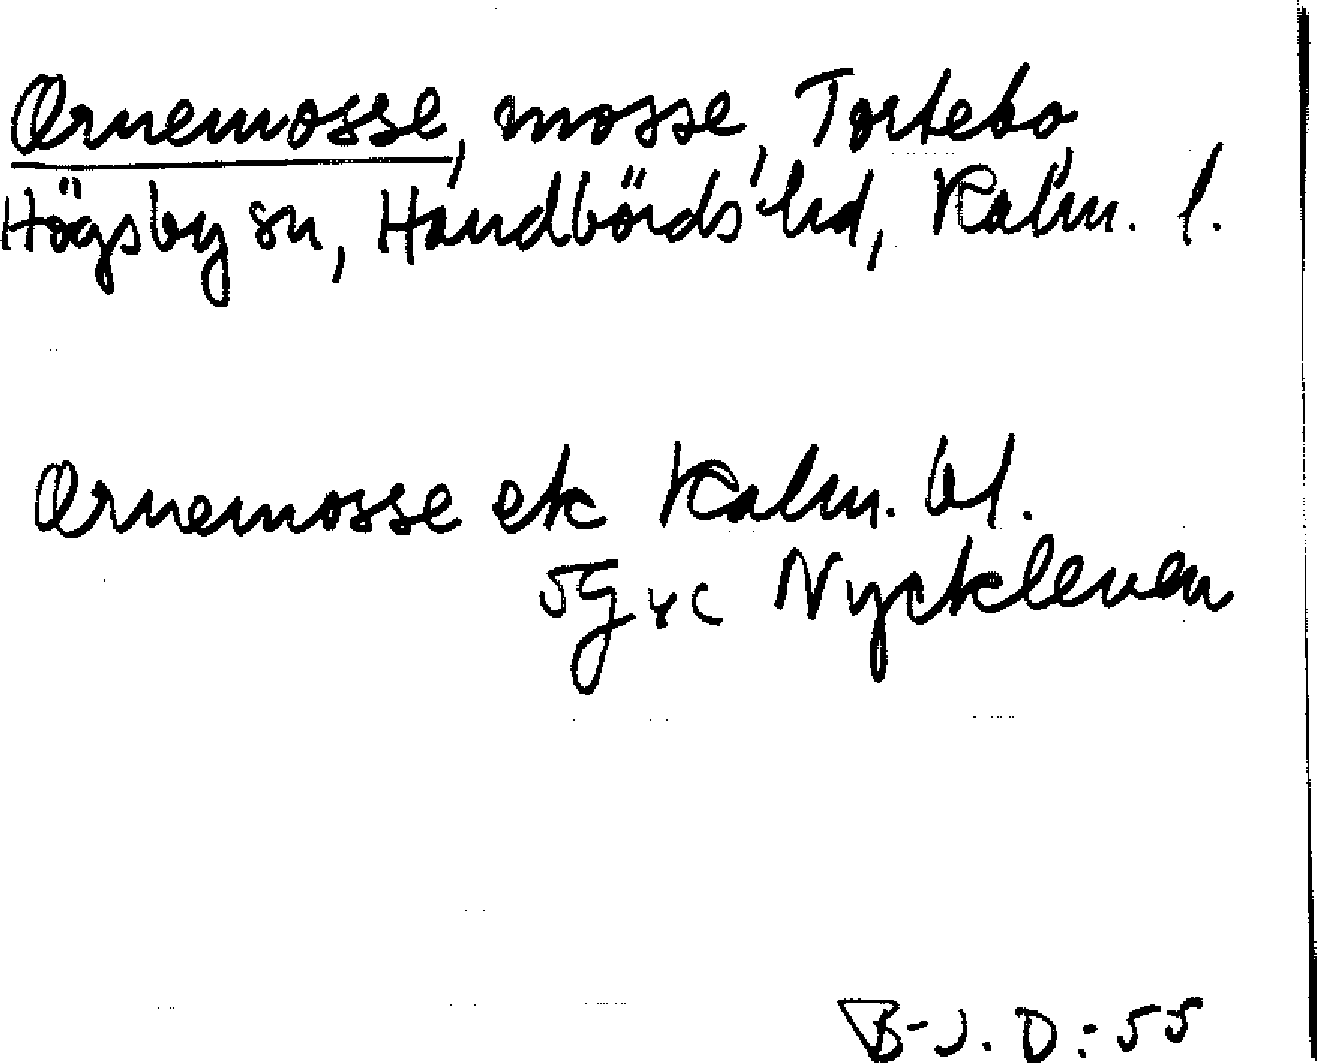 Ornemosse, mosse, Tortebo,
Högsby sn, Handbörds hd, Kalm. l.
Ornemosse ek Kalm. bl.
5G4c Nyckleven
B-J. D:55